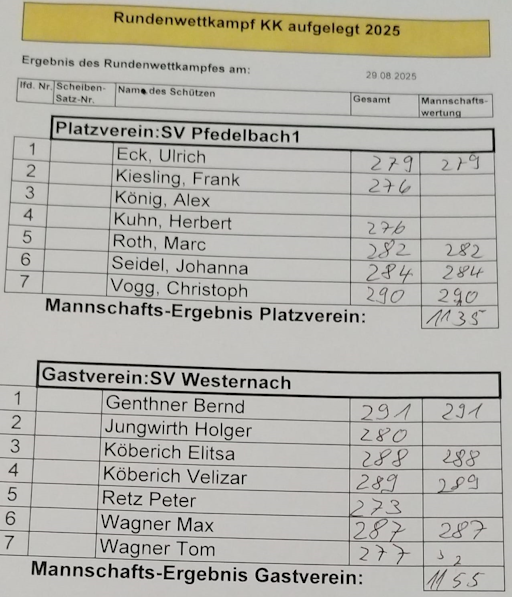 Rundenwettkampf KK aufgelegt 2025
Ergebnis des Rundenwettkampfes am: 29.08.2025
lfd. Nr. Scheiben-Satz-Nr. Name des Schützen Gesamt Mannschafts-wertung
Platzverein:SV Pfedelbach1
1 Eck, Ulrich 279 279
2 Kiesling, Frank 276
3 König, Alex
4 Kuhn, Herbert 276
5 Roth, Marc 282 282
6 Seidel, Johanna 284 284
7 Vogg, Christoph 290 290
Mannschafts-Ergebnis Platzverein: 1135
Gastverein:SV Westernach
1 Genthner Bernd 291 291
2 Jungwirth Holger 280
3 Köberich Elitsa 288 288
4 Köberich Velizar 289 289
5 Retz Peter 273
6 Wagner Max 287 287
7 Wagner Tom 277
Mannschafts-Ergebnis Gastverein: 1155